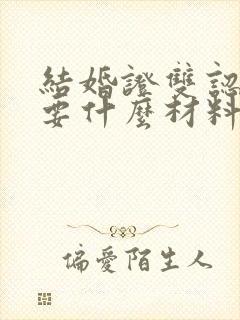 結婚證雙認
要什麼材料
偏愛陌生人